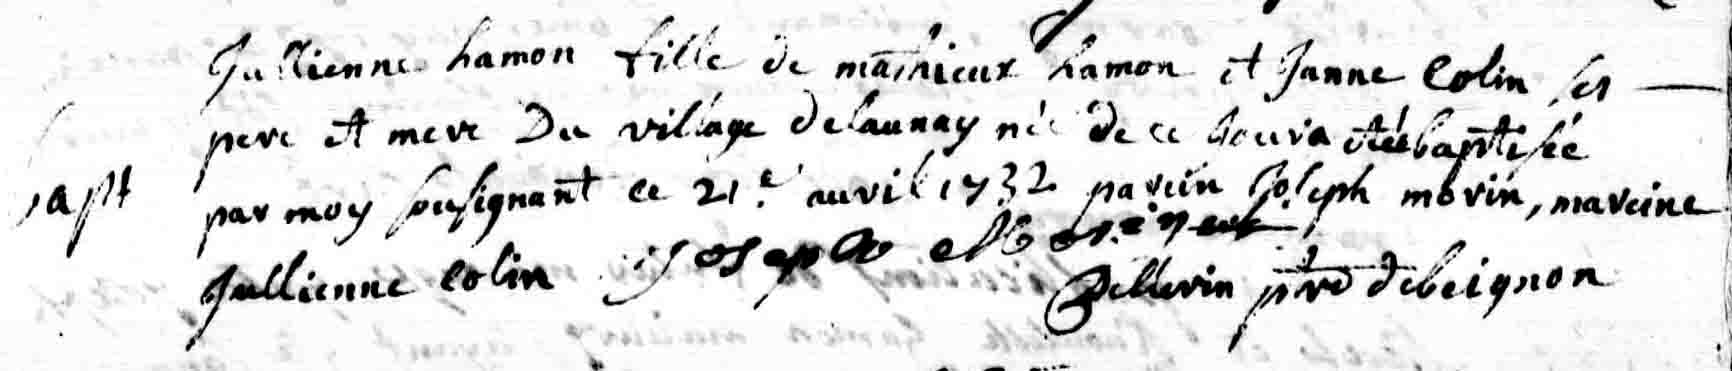 Jullienne hamon fille de mathieux hamon et Janne Colin ses
pere et mere Du village delaunay née de ce jour a été baptisée
bapt
par moy sousignant ce 21e auvril 1732 parein Joseph morin, mareine
Jullienne Colin Joseph Morin
Pellerin ptre debeignon